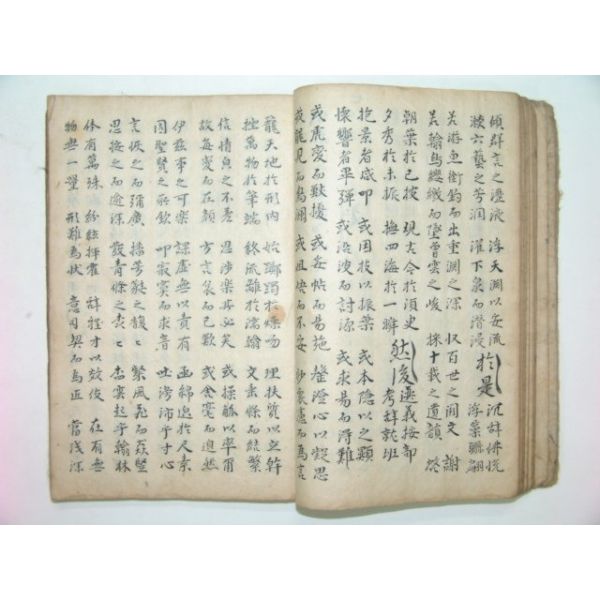 傾群言之瀝液 浮天淵以安流 於是 沉辭怫悅
漱六藝之芳潤 濯下泉而潛浸 浮藻聯翩
若游魚銜鉤而出重淵之深 收百世之闕文 謝
若翰鳥纓繳而墜曾雲之峻 採千載之遺韻 啓
朝華於已披 觀古今於須臾 然後 選義按部
夕秀於未振 撫四海於一瞬 考辞就班
抱景者咸叩 或因枝以振葉 或本隱以之顯
懷響者畢彈 或沿波而討源 或求易而得難
或虎變而獸擾 或妥帖而易施 罄澄心以凝思
或龍見而鳥瀾 或岨峿而不安 眇衆慮而為言
籠天地於形內 始躑躅於燥吻 理扶質以立幹
挫萬物於筆端 終流離於濡翰 文垂條而結繁
信情皃之不差 思涉樂其必笑 或操觚以率爾
故每變而在顔 方言哀而已歎 或含毫而邈然
伊茲事之可樂 課虛無以責有 函綿邈於尺素
固聖賢之所欽 叩寂寞而求音 吐滂沛乎寸心
言恢之而彌廣 播芳蕤之馥馥 粲風飛而猋竪
思按之而逾深 發青條之森森 鬱雲起乎翰林
体有萬殊 紛紜揮霍 辞程才以效伎 在有無
物無一量 形難爲狀 意司契而爲匠 當淺深